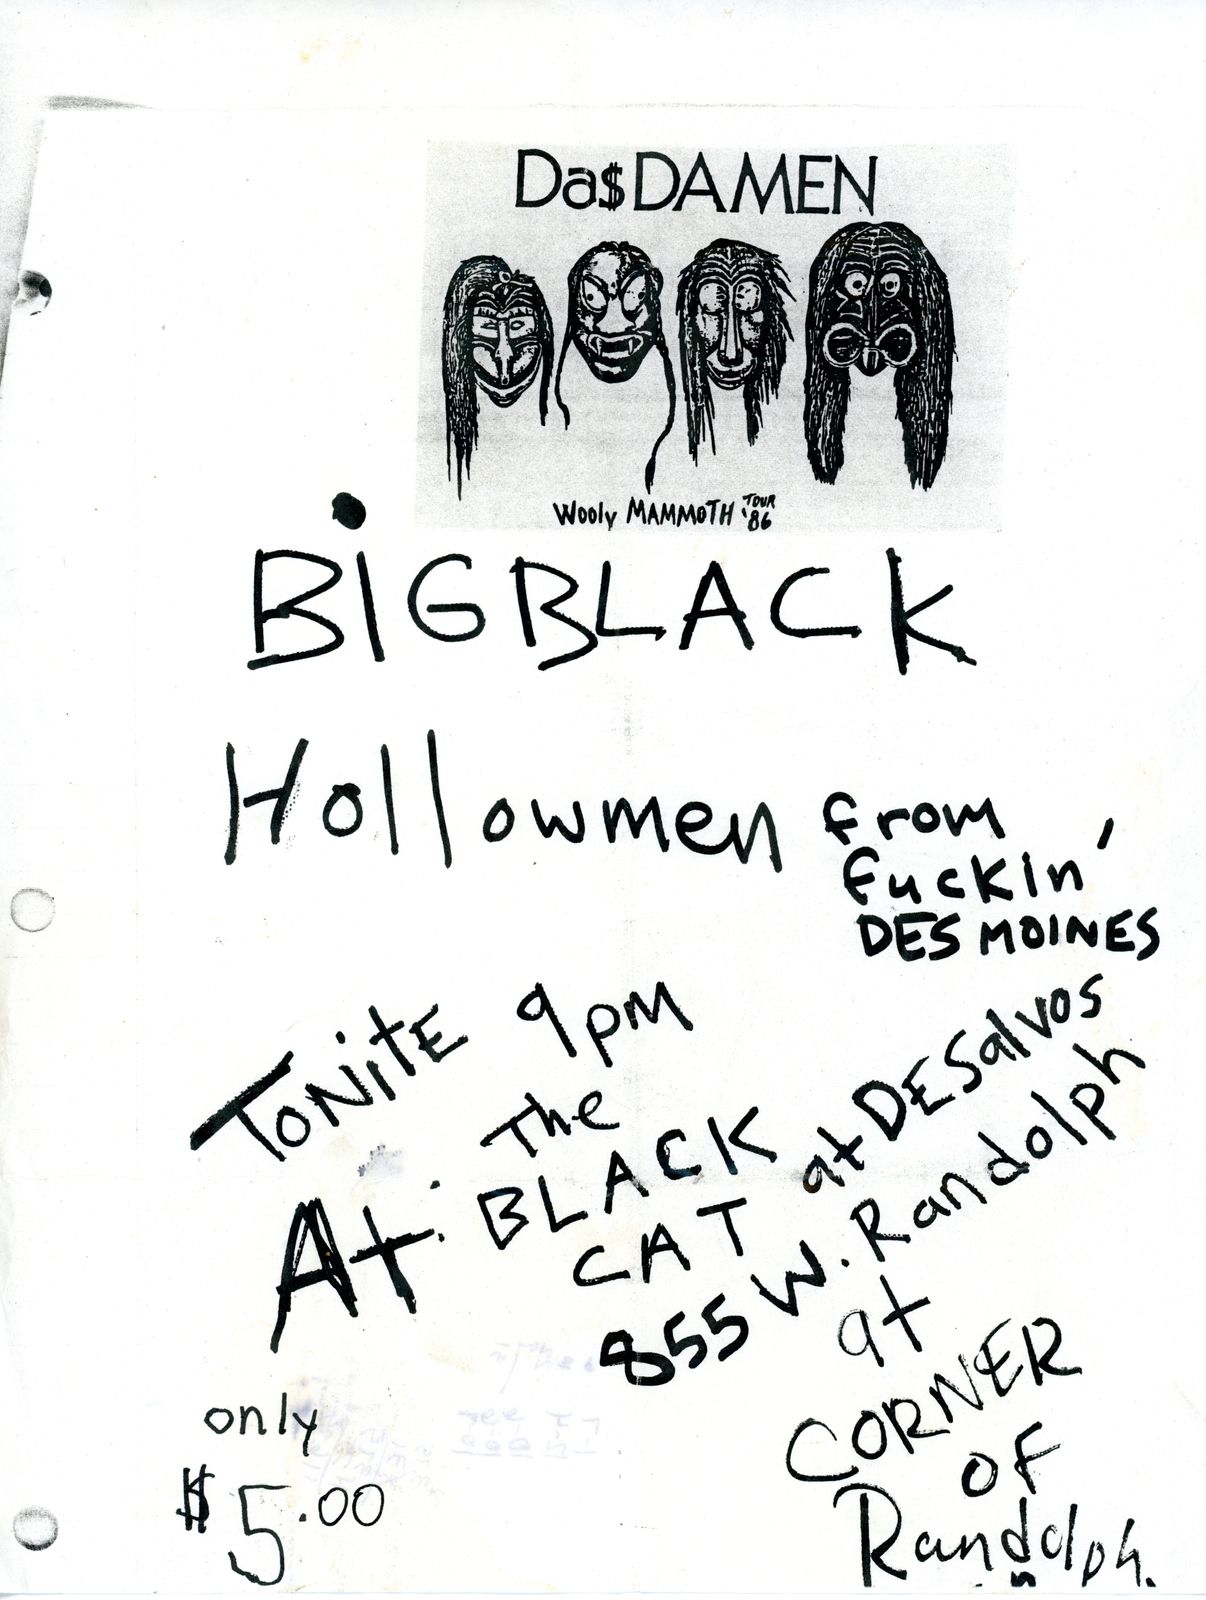 Da$ DAMEN
Wooly MAMMOTH TOUR '86
BiGBLACK
Hollowmen from
fuckin'
DES MOINES
TONiTE 9pm
At: The
BLACK
CAT at DESalvos
855 W. Randolph
at
CORNER
OF
Randolph.
only
$5.00